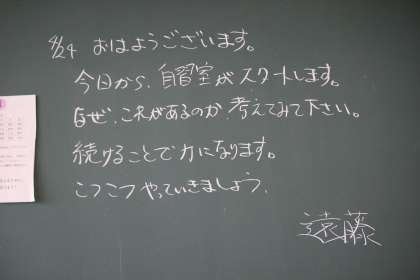 4/24 おはようございます。
今日から、自習室がスタートします。
なぜ、これがあるのか、考えてみて下さい。
続けることで力になります。
こつこつやっていきましょう、
遠藤